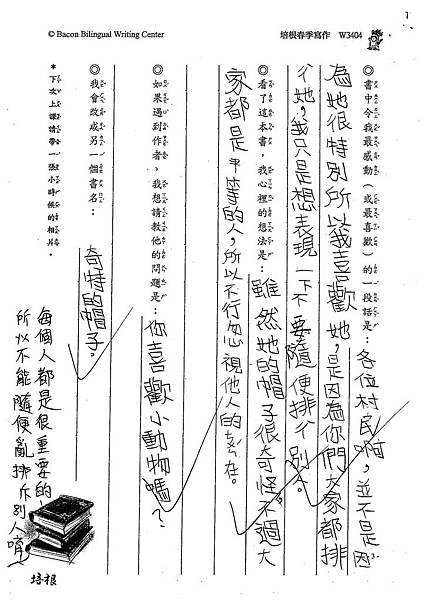 1
© Bacon Bilingual Writing Center
培根春季寫作 W3404
◎書中令我最感動(或最喜歡)的一段話是：各位村民啊，並不是因
為她很特別所以我喜歡她，是因為你們大家都排
斥她，我只是想表現一下不要隨便排斥別人。
◎看了這本書，我心裡的想法是：雖然她的帽子很奇怪不過大
家都是平等的人，所以不行忽視他人的存在。
◎如果遇到作者，我想請教他的問題是：你喜歡小動物嗎？
◎我會改成另一個書名：
奇特的帽子。
＊下次上課請帶一張小時候的相片。
每個人都是很重要的，
所以不能隨便亂排斥別人唷～
培根